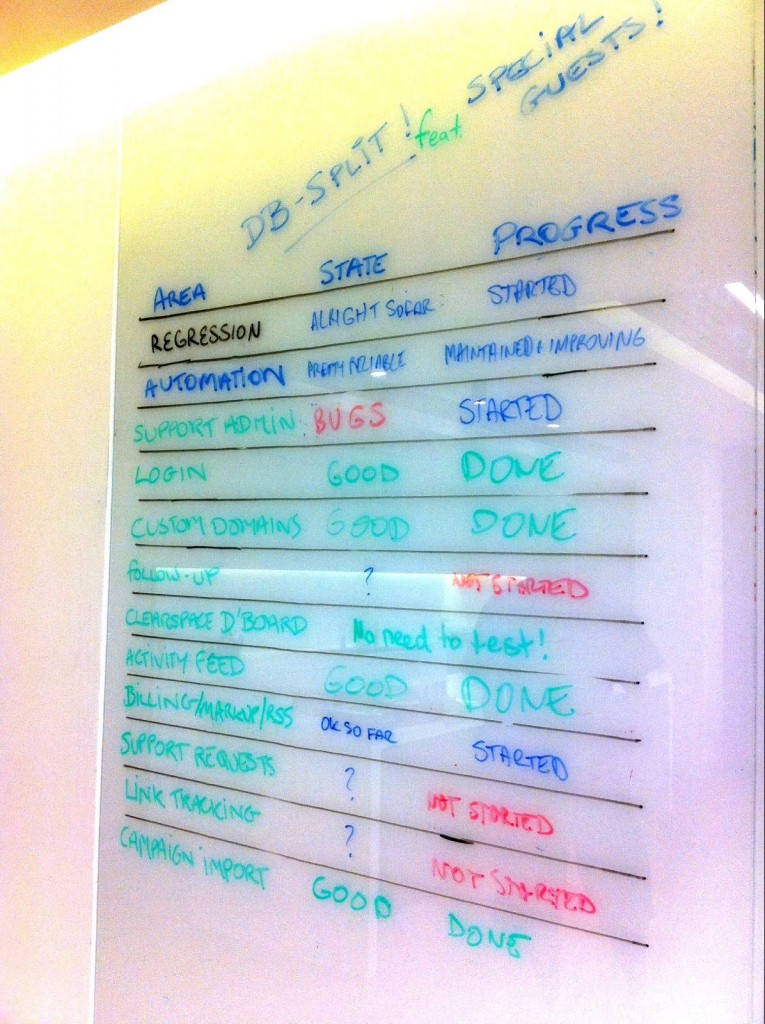 DB-SPLIT! feat. SPECIAL GUESTS!
AREA STATE PROGRESS
REGRESSION ALRIGHT SO FAR STARTED
AUTOMATION PRETTY RELIABLE MAINTAINED & IMPROVING
SUPPORT ADMIN BUGS STARTED
LOGIN GOOD DONE
CUSTOM DOMAINS GOOD DONE
FOLLOW-UP ? NOT STARTED
CLEARSPACE D'BOARD No need to test!
ACTIVITY FEED GOOD DONE
BILLING/MARKUP/RSS OK SO FAR STARTED
SUPPORT REQUESTS ? NOT STARTED
LINK TRACKING ? NOT STARTED
CAMPAIGN IMPORT GOOD DONE